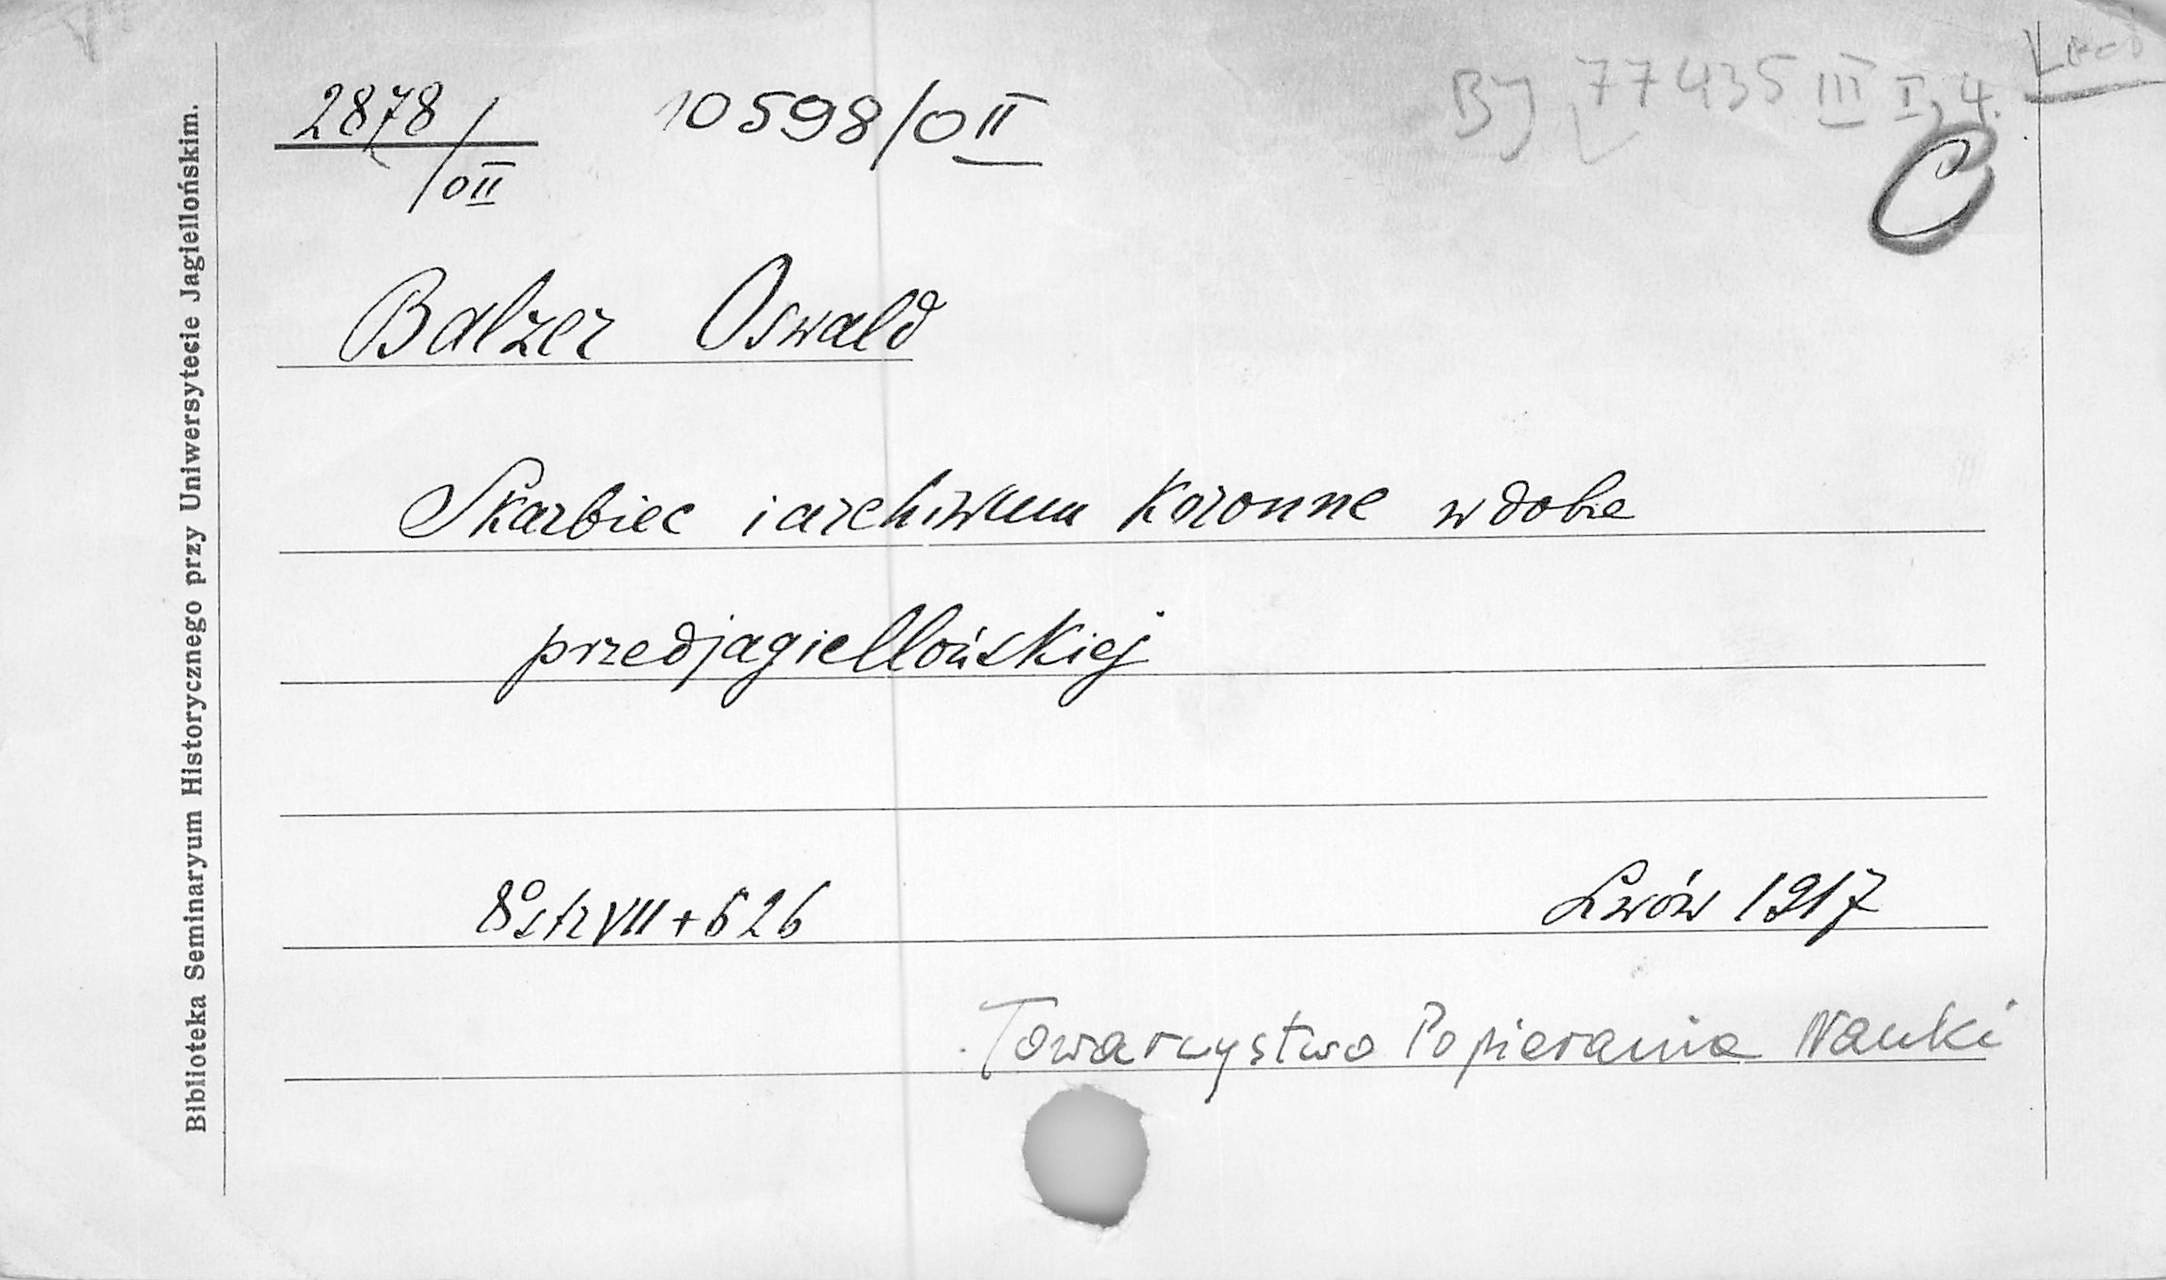 2878/OII 10598/OII BJ 77435 III I, 4.
C
Balzer Oswald
Skarbiec i archiwum koronne w dobie
przedjagiellońskiej
8° str VII + 626 Lwów 1917
Towarzystwo Popierania Nauki
Biblioteka Seminaryum Historycznego przy Uniwersytecie Jagiellońskim.